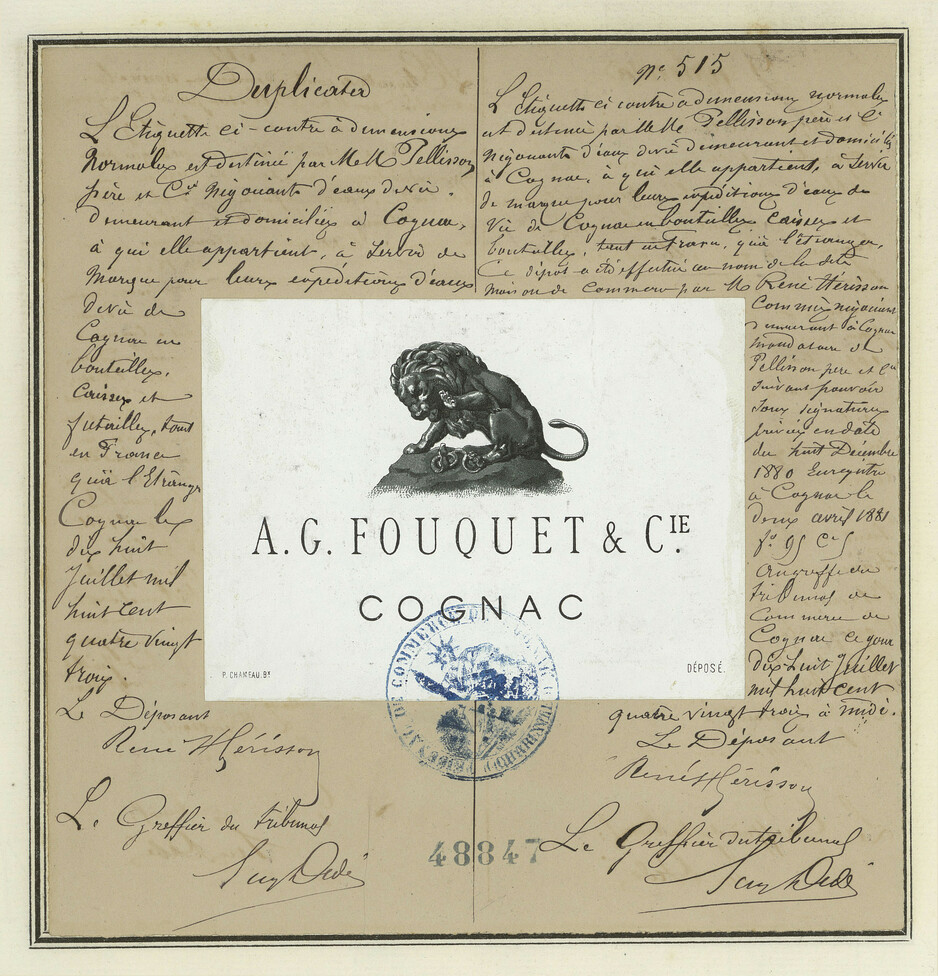 Duplicata
L'Etiquette ci-contre à dimensions
normales est destinée par MM Pellisson
père et Cie Négociants d'eaux de vie.
demeurant et domiciliés à Cognac,
à qui elle appartient, à servir de
Marque pour leurs expéditions d'eaux
de vie de
Cognac en
bouteilles,
Caisses et
futailles, tant
en France
qu'à l'Etranger
Cognac le
dix huit
Juillet mil
huit cent
quatre vingt
trois.
Le Déposant
René Hérisson
Le Greffier du tribunal
No 515
L'Etiquette ci contre à dimensions normales
est destinée par MM Pellisson père et Cie
Négociants d'eaux de vie demeurant et domiciliés
à Cognac, à qui elle appartient, à servir
de marque pour leurs expéditions d'eaux de
Vie de Cognac en bouteilles caisses et
tant en France, qu'à l'étranger,
Ce dépôt a été effectué au nom de la dite
maison de commerce par M René Hérisson
Commis négociant
demeurant à Cognac
mandataire de
Pellisson père et Cie
suivant pouvoir
sous signatures
privées en date
du huit Décembre
1880 Enregistré
à Cognac le
deux avril 1881
fo 95 Cs
Au greffe du
tribunal de
Commerce de
Cognac ce jour
dix huit Juillet
mil huit cent
quatre vingt trois à midi.
Le Déposant
René Hérisson
Le Greffier du tribunal
A.G. FOUQUET & CIE.
COGNAC
P. CHAMEAU. Bx
DÉPOSÉ.
48847